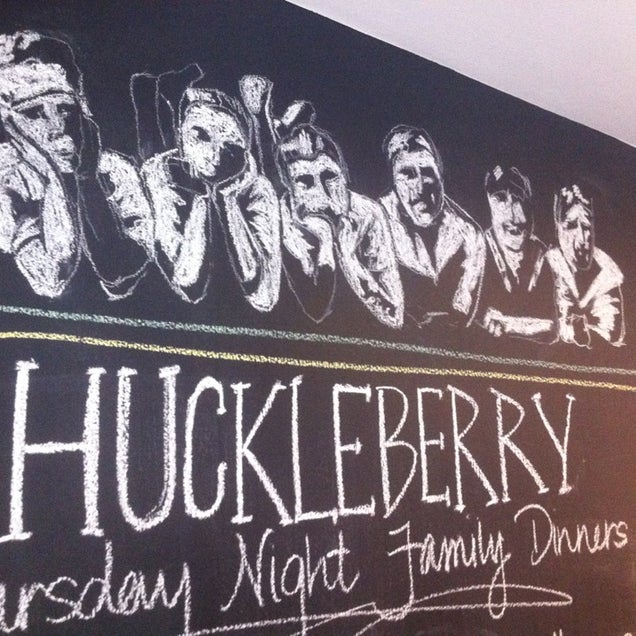 HUCKLEBERRY
ursday Night Family Dinners